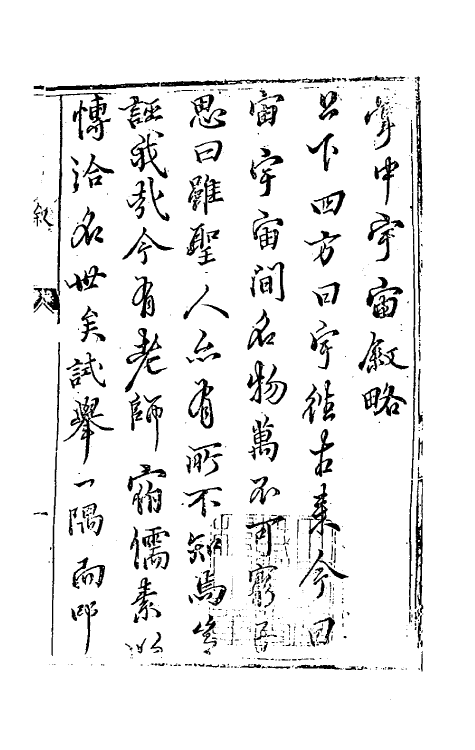 掌中宇宙叙略
上下四方曰宇徃古来今曰
宙宇宙間名物萬不可窮子
思曰雖聖人亦有所不知焉豈
誣我哉今有老師宿儒素以
愽洽名世矣试舉一隅而叩
叙
一